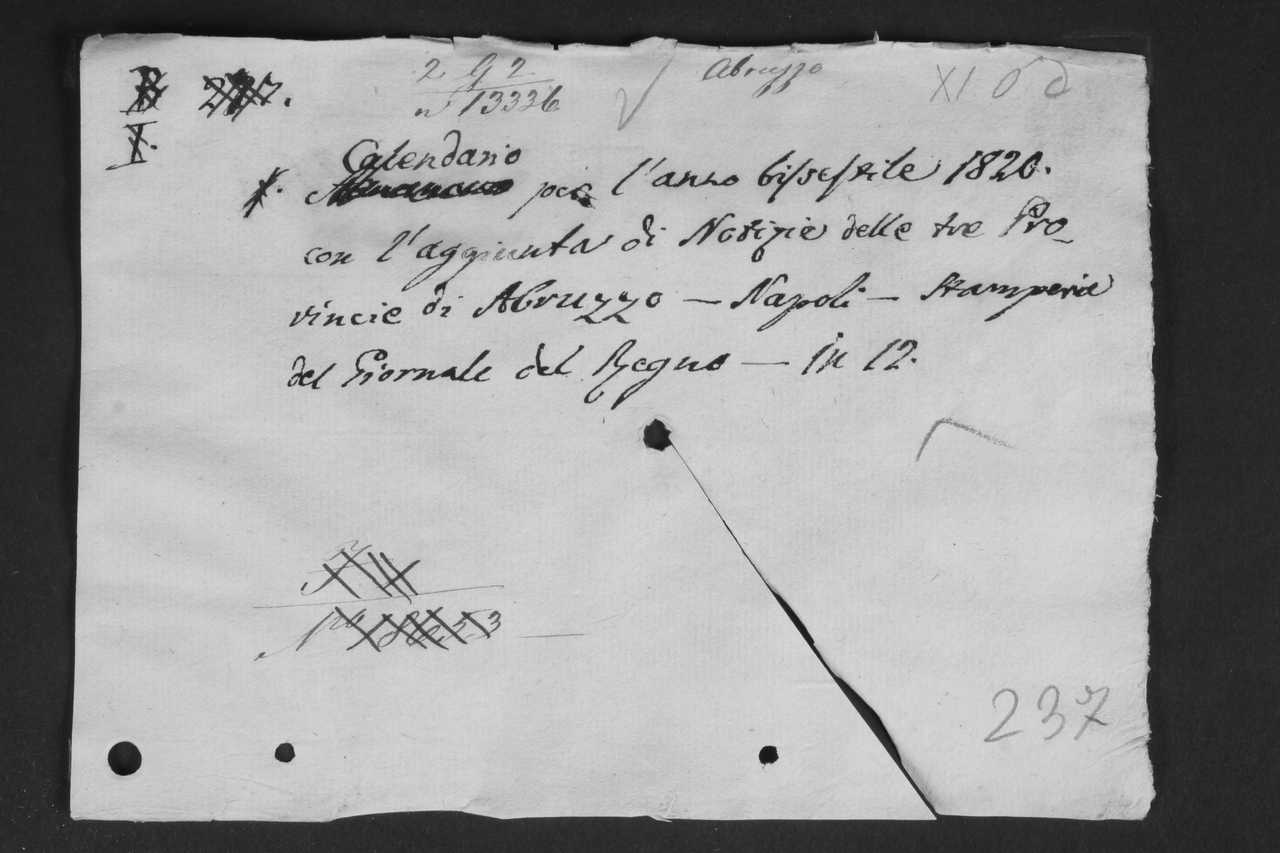 292 Abruzzo XI
n 13336
Calendario
per l'anno bissestile 1820.
con l'aggiunta di Notizie delle tre Pro_
vincie di Abruzzo — Napoli — Stamperia
del Giornale del Regno — in 12.
237